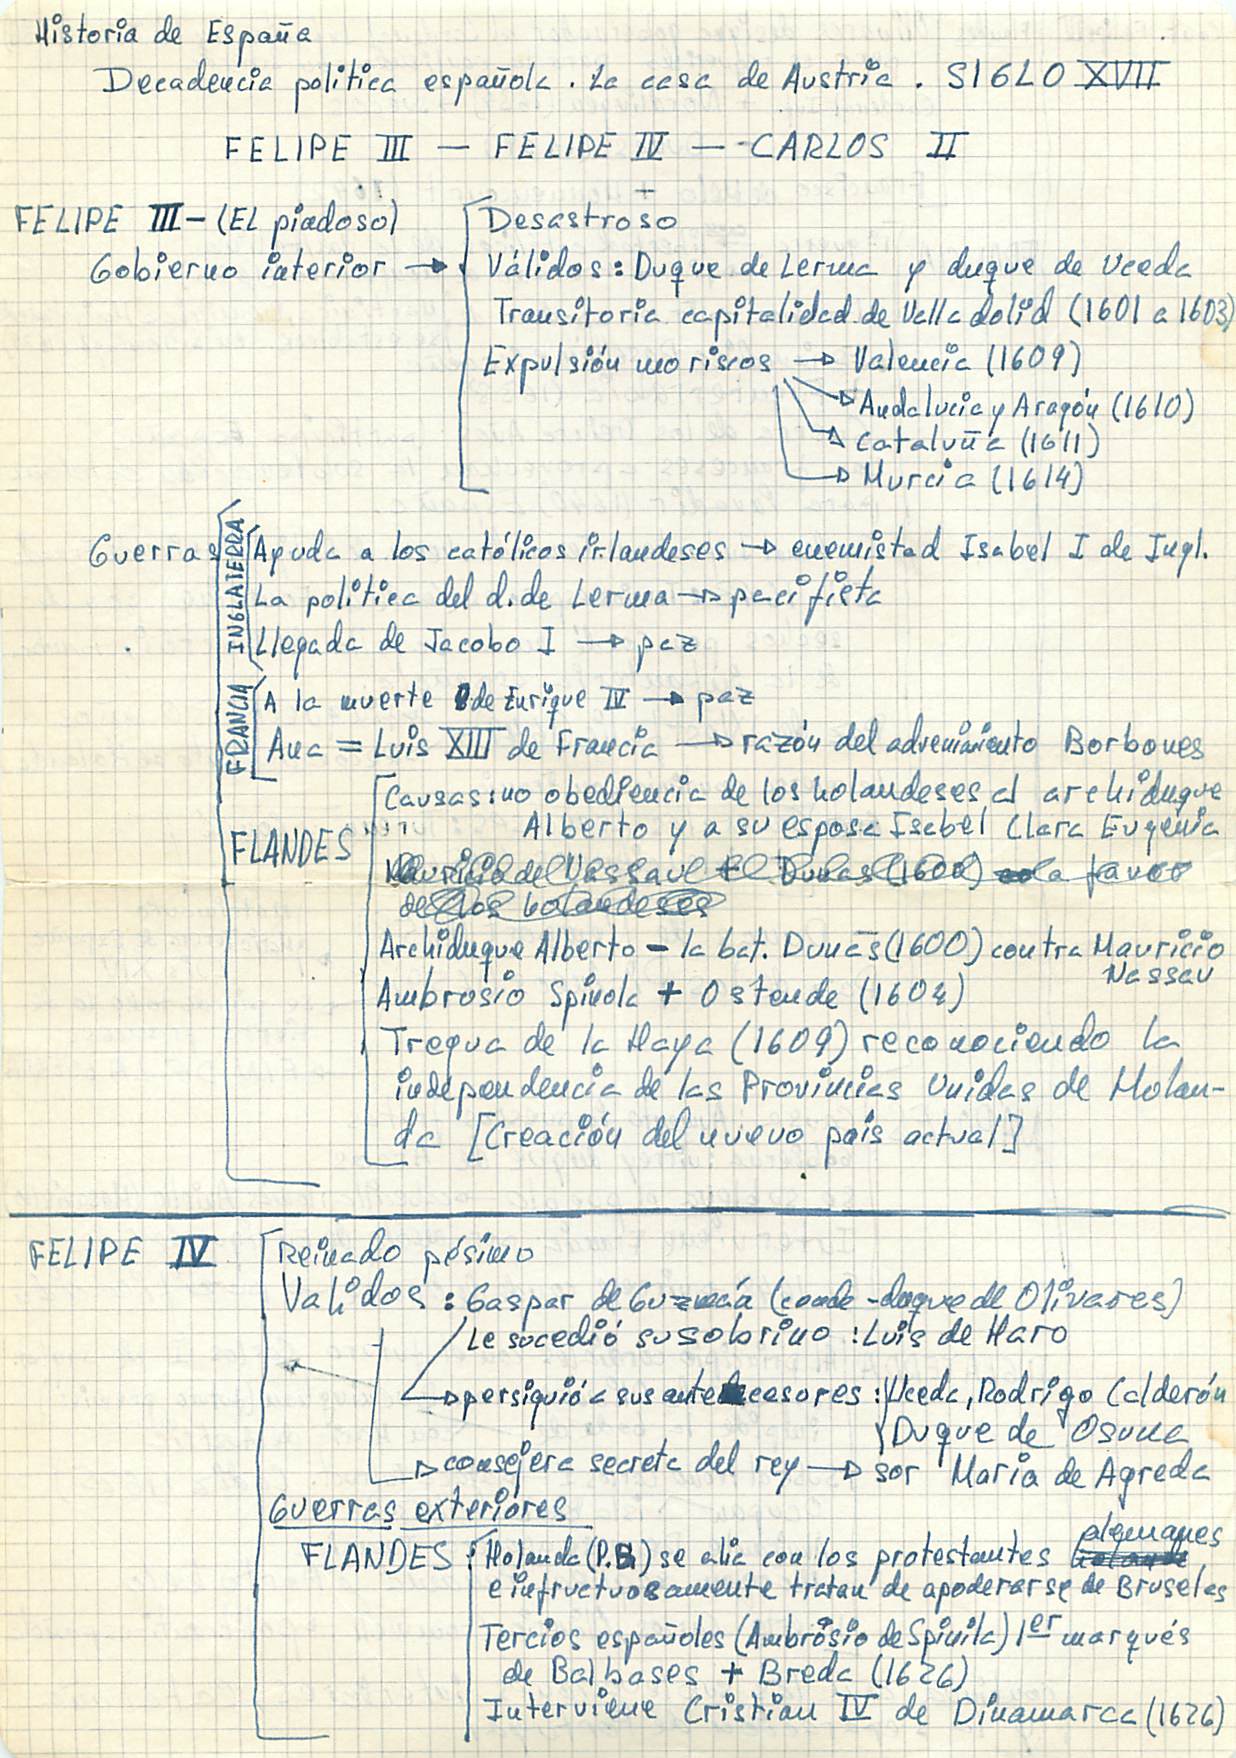 Historia de España
Decadencia politica española. La casa de Austria. SIGLO XVII
FELIPE III — FELIPE IV — CARLOS II
FELIPE III - (EL piadoso)
Gobierno interior →
Desastroso
Válidos: Duque de Lerma y duque de Uceda
Transitoria capitalidad de Valladolid (1601 a 1603)
Expulsión moriscos → Valencia (1609)
→ Andalucia y Aragón (1610)
→ Cataluña (1611)
→ Murcia (1614)
Guerras
INGLATERRA
Ayuda a los católicos irlandeses → enemistad Isabel I de Ingl.
La politica del d. de Lerma → pacifista
Llegada de Jacobo I → paz
FRANCIA
A la muerte de Enrique IV → paz
Ana = Luis XIII de Francia → razón del advenimiento Borbones
FLANDES
Causas: no obediencia de los holandeses al archiduque
Alberto y a su esposa Isabel Clara Eugenia
Mauricio de Nassau + Dunas (1600) a favor
de los holandeses
Archiduque Alberto - la bat. Dunas (1600) contra Mauricio
Nassau
Ambrosio Spinola + Ostende (1604)
Tregua de la Haya (1609) reconociendo la
independencia de las Provincias Unidas de Holan-
da [Creación del nuevo pais actual]
FELIPE IV
Reinado pésimo
Validos: Gaspar de Guzmán (conde-duque de Olivares)
Le sucedió su sobrino: Luis de Haro
→ persiguió a sus antecesores: Uceda, Rodrigo Calderón
Duque de Osuna
→ consejera secreta del rey → sor Maria de Agreda
Guerras exteriores
FLANDES: Holanda (P.B.) se alia con los protestantes alemanes
e infructuosamente tratan de apoderarse de Bruselas
Tercios españoles (Ambrósio de Spinila) 1er marqués
de Balbases + Breda (1626)
Interviene Cristian IV de Dinamarca (1626)